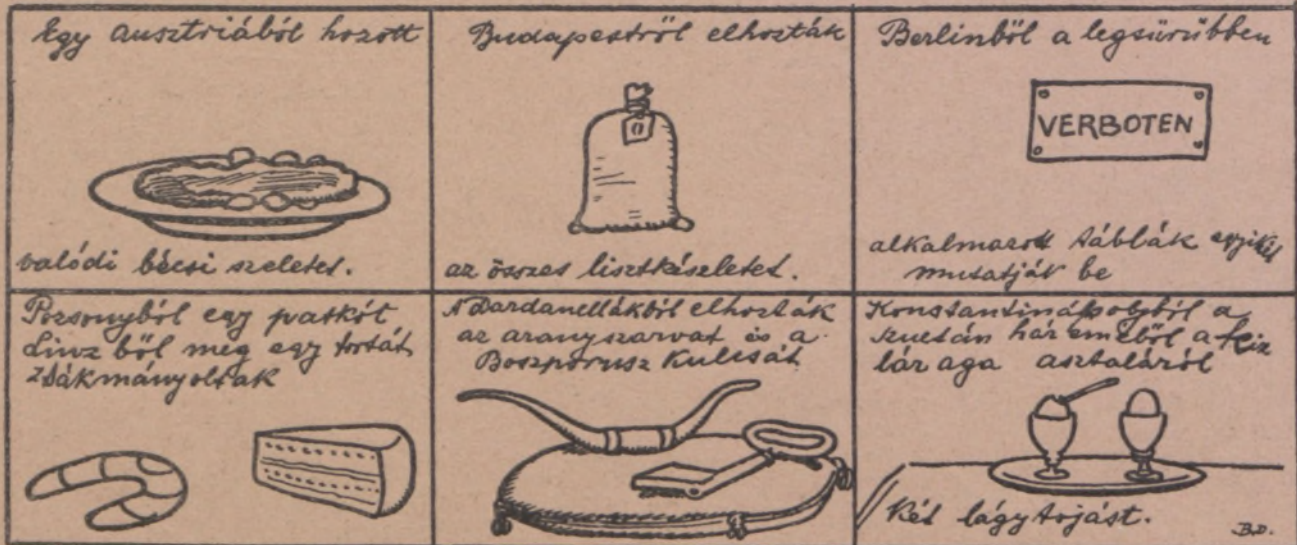 Egy ausztriából hozott
valódi bécsi szeletet.
Budapestről elhozták
az összes lisztkészletet.
Berlinből a legsürübben
VERBOTEN
alkalmazott táblák egyikét
mutatják be
Pozsonyból egy patkót
Linz ből meg egy tortát
zsákmányoltak
A Dardanellákból elhozták
az aranyszarvat és a
Boszporusz kulcsát
Konstantinápolyból a
szultán háreméből a kiz
lár aga asztaláról
Két lágytojást.
B.D.